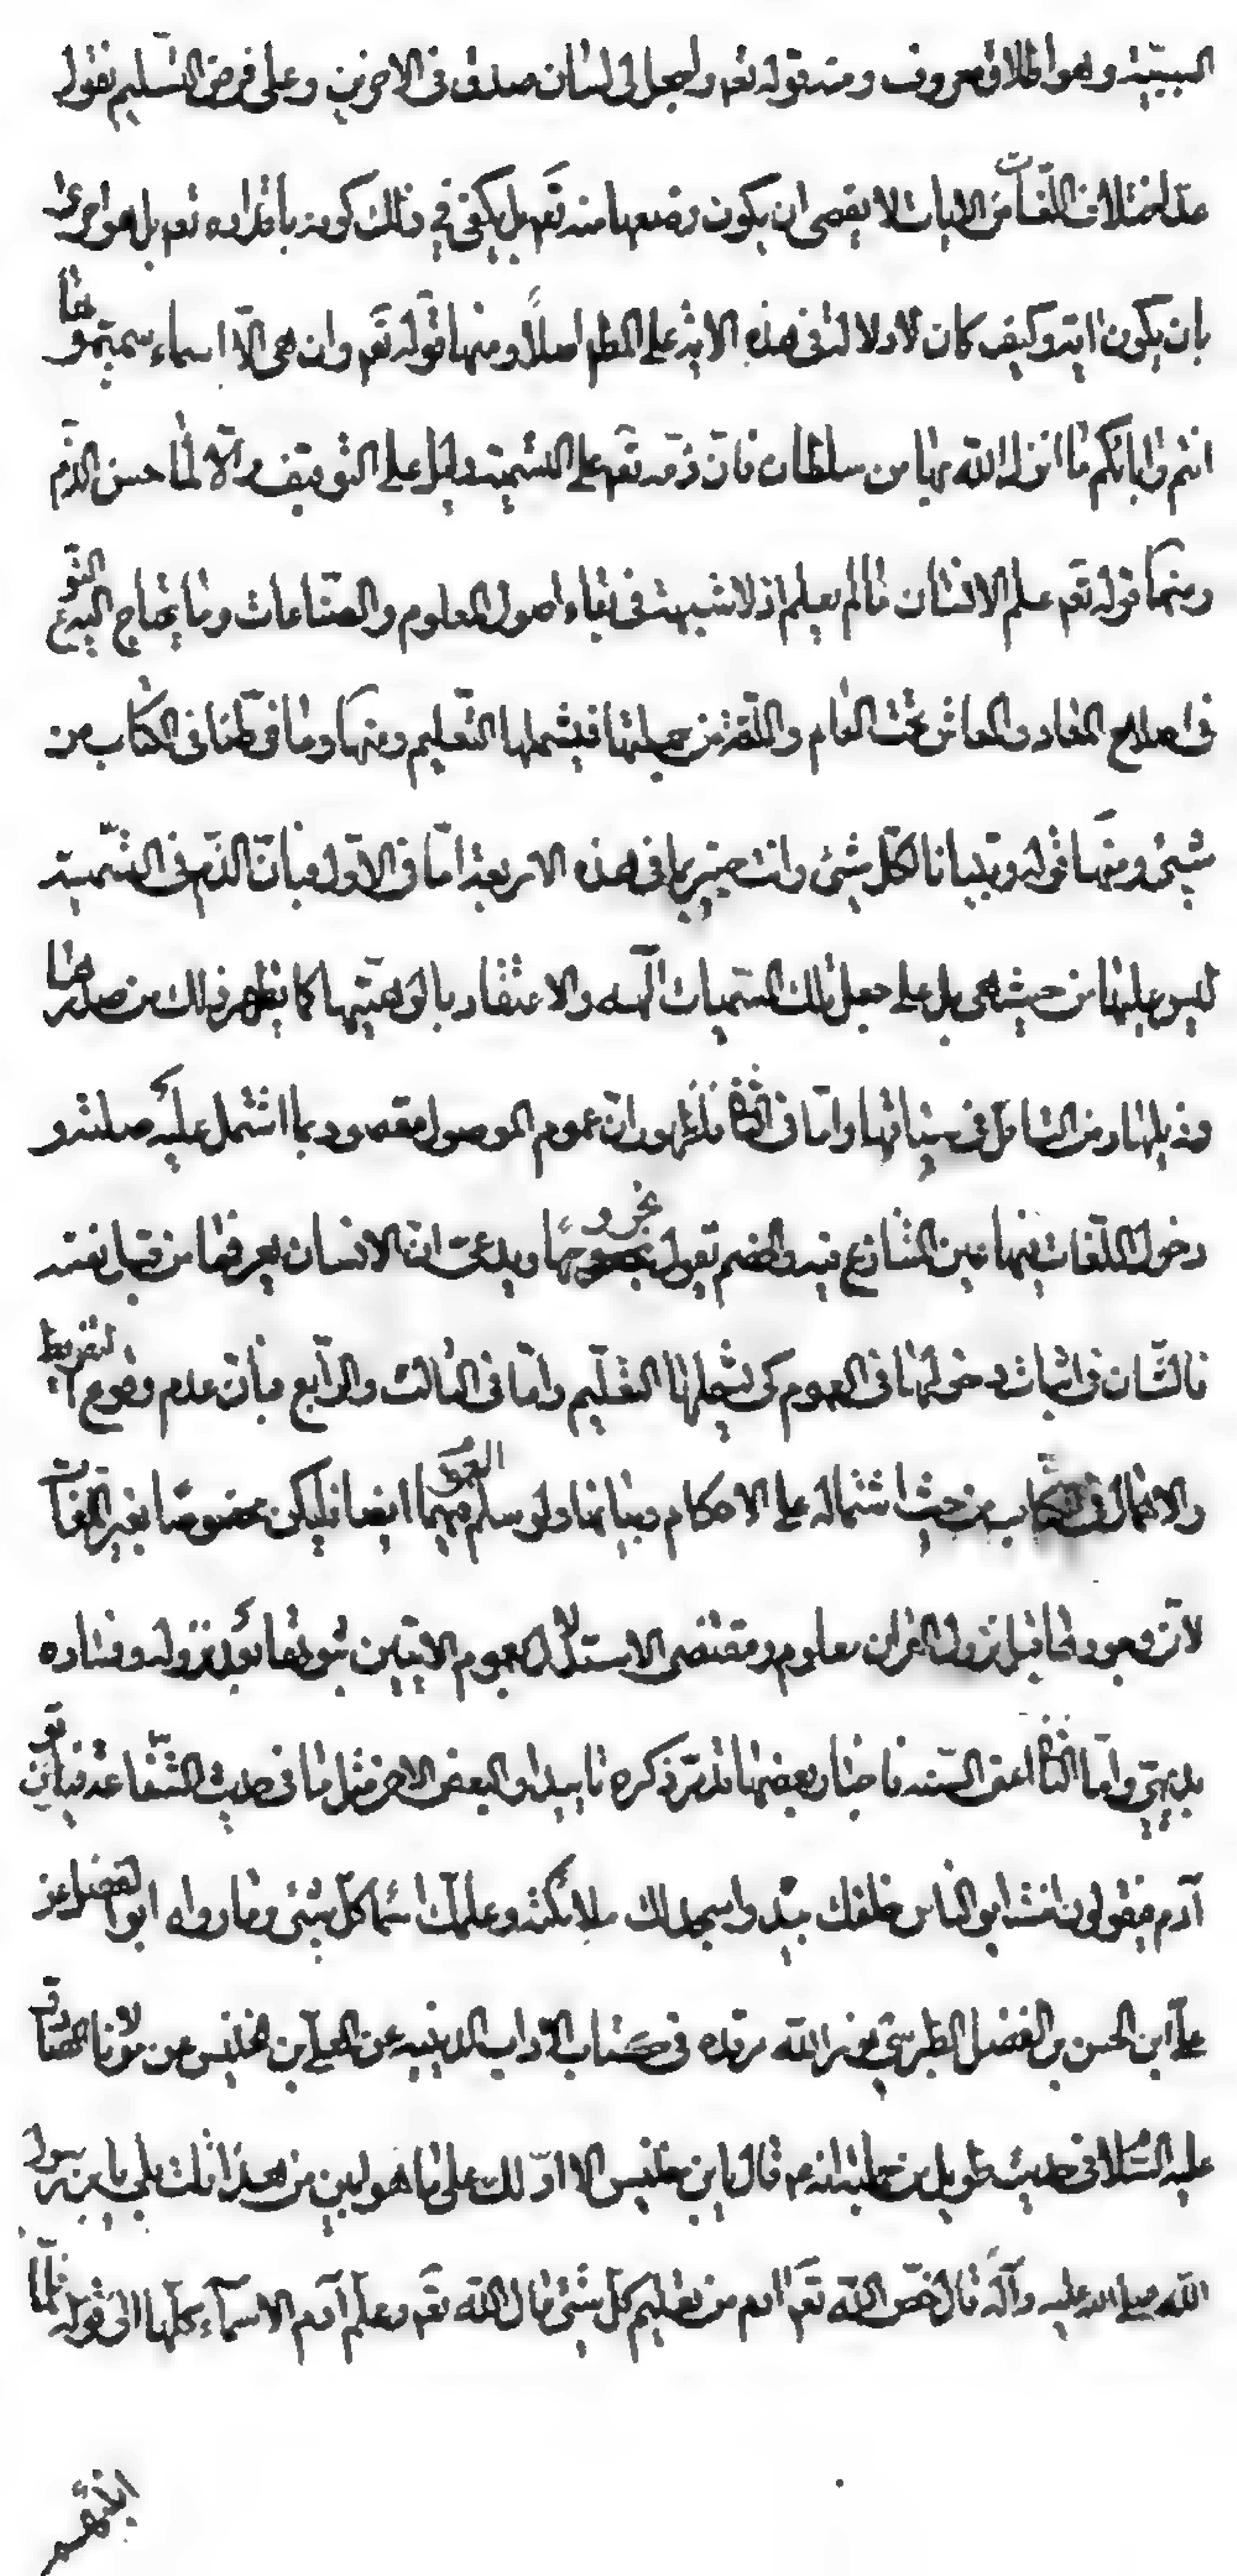 السببيّة وهو اطلاق معروف ومنه قوله تعه واجعل لى لسان صدق فى الاخرين وعلى فرض التسليم نقول
عدّ اختلاف اللّغات من الايات لا يقتضى ان يكون وضعها منه تعه بل يكفى فى ذلك كونه باقداره تعه بل هو احرى
بان يكون اية وكيف كان لا دلالة فى هذه الاية على المط اصلاً ومنها قوله تعه وان هى الّا اسماء سميتموها
انتم وابائكم ما انزل الله بها من سلطان فانّ ذمّه تعه على التسمية دليل على التوقيف والّا لما حسن الذّم
ومنها قوله تعه علم الانسان ما لم يعلم اذ لا شبهة فى بقاء اصول العلوم والصّناعات وما يحتاج اليه النّوع
فى اصلاح المعاد والمعاش تحت العام واللّغة من جملتها فيشملها التّعليم ومنها وما فرّطنا فى الكتاب من
شيئ ومنها قوله وتبيانا لكلّ شيئ وانت خبير بما فى هذه الاربعة امّا فى الاوّل فبانّ الذّم فى التّسمية
ليس عليها من حيث هى بل على جعل تلك المسّميات آلهه والاعتقاد بالوهيّتها كما يظهر ذلك من صدرها
وذيلها ومن التامل فى سياقها وامّا فى الثانى فلظهور انّ عموم الموصول مقصود بما اشتمل عليه صلته و
دخول اللّغات فيها عين المتنازع فيه والخصم يقول بخروجها ويدعى انّ الانسان يعرفها من قبل نفسه
فالشّان فى اثبات دخولها فى العموم كى يشملها التعليم وامّا فى الثالث والرّابع فبانّ عدم وقوع التفريط
والاهمال فى الكتاب من حيث اشتماله على الاحكام وبيانها ولو سلم العموم فيهما ايضا فليكن مخصوصًا بغير اللّغات
لانّ وجودها قبل نزول القران معلوم ومقتضى الاستدلال بعموم الايتين ثبوتها بعد نزوله وفساده
بديهىّ وامّا الثانى اعنى السّنه فاخبار بعضها قد مرّ ذكره تاييدا والبعض الاخر مثل ما فى حديث الشّفاعة فياتون
آدم فيقولون انت ابو الناس خلقك بيده واسجد لك ملائكته وعلمك اسماء كلّ شيئ وما رواه ابو الفضل
علىّ ابن الحسن بن الفضل الطبرسىّ نور الله مرقده فى كتاب الآداب الدينيه عن المعلّى بن خنيس عن مولانا الصّادق
عليه السّلام فى حديث طويل من جملته انه ع قال يابن خنيس الا ادّلك على ما هو ابين من هذا قلت بلى يابن رسول
الله صلى الله عليه وآله قال خصّ الله تعه ادم من تعليم كل شيئ قال الله تعه وعلّم آدم الاسمآء كلّها الى قوله فلمّا
انبئهم